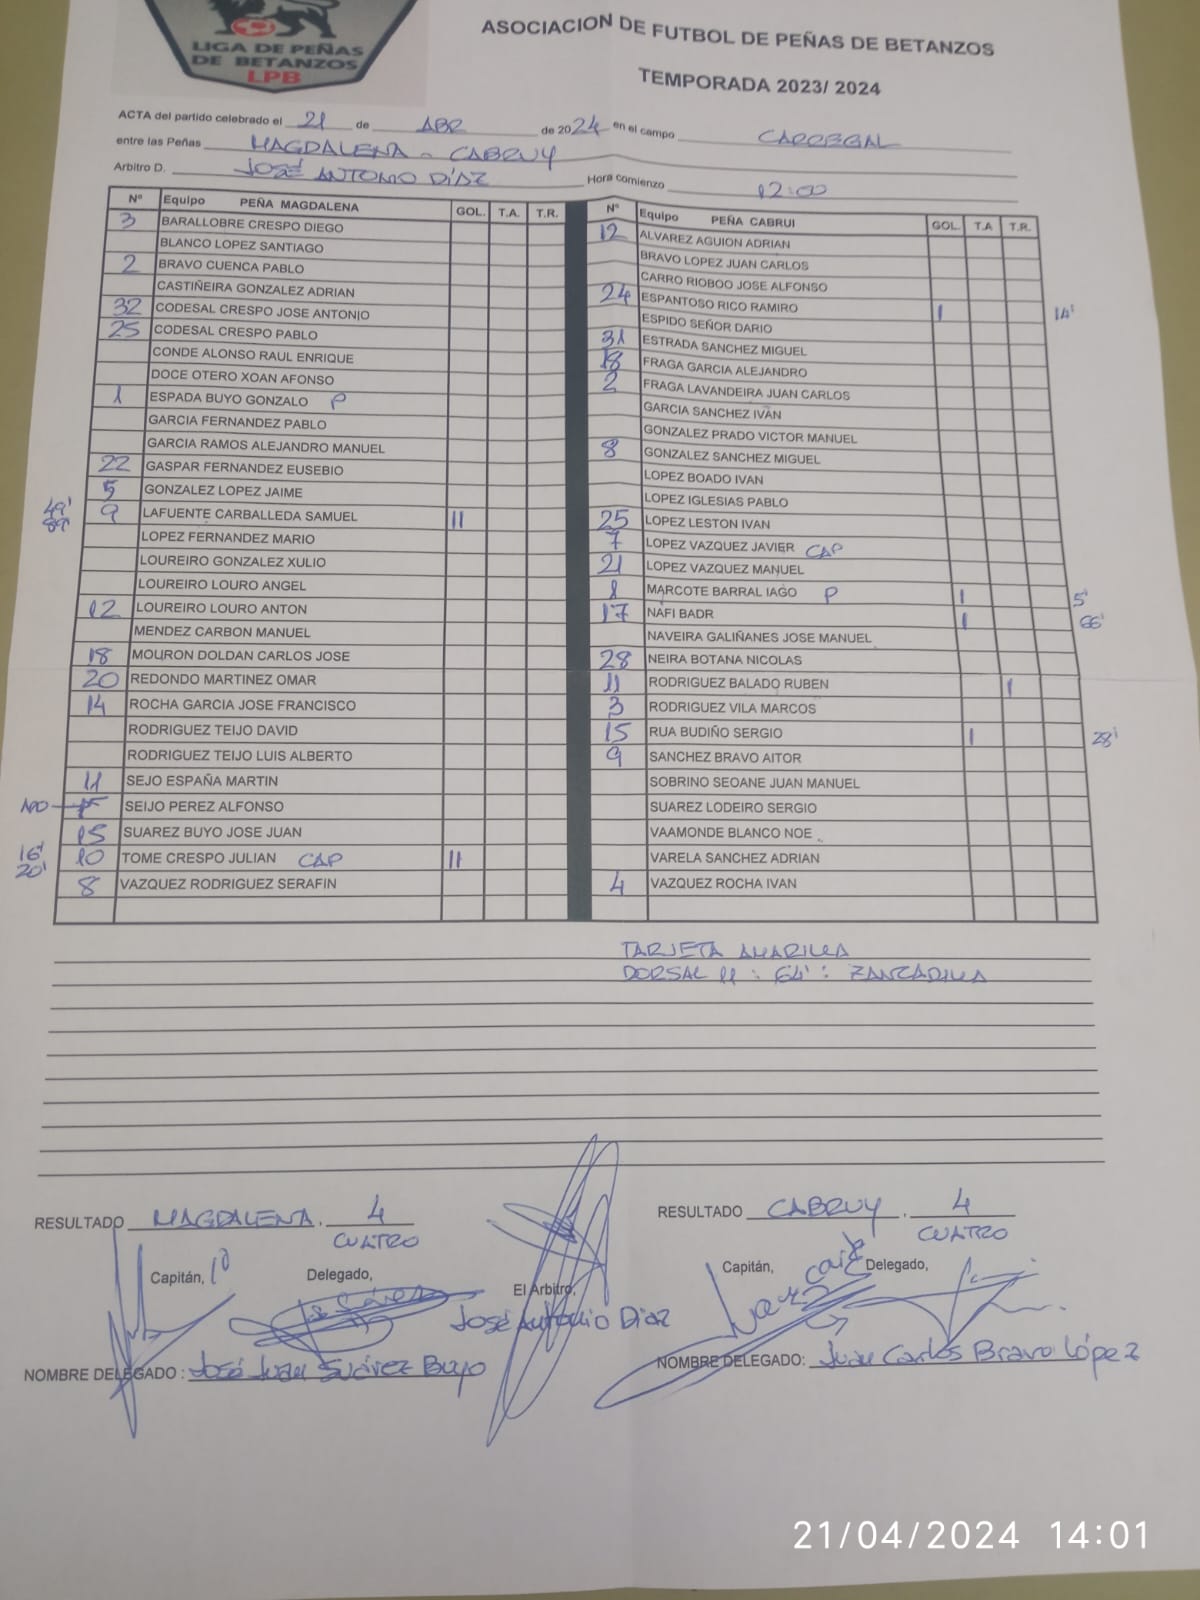 LIGA DE PEÑAS
DE BETANZOS
LPB
ASOCIACION DE FUTBOL DE PEÑAS DE BETANZOS
TEMPORADA 2023/ 2024
ACTA del partido celebrado el 21 de ABR de 2024 en el campo CARREGAL
entre las Peñas MAGDALENA - CABRUY
Arbitro D. JOSÉ ANTONIO DÍAZ Hora comienzo 12:00
Nº Equipo PEÑA MAGDALENA GOL. T.A. T.R.
3 BARALLOBRE CRESPO DIEGO
BLANCO LOPEZ SANTIAGO
2 BRAVO CUENCA PABLO
CASTIÑEIRA GONZALEZ ADRIAN
32 CODESAL CRESPO JOSE ANTONIO
25 CODESAL CRESPO PABLO
CONDE ALONSO RAUL ENRIQUE
DOCE OTERO XOAN AFONSO
1 ESPADA BUYO GONZALO P
GARCIA FERNANDEZ PABLO
GARCIA RAMOS ALEJANDRO MANUEL
22 GASPAR FERNANDEZ EUSEBIO
5 GONZALEZ LOPEZ JAIME
49' 89' 9 LAFUENTE CARBALLEDA SAMUEL II
LOPEZ FERNANDEZ MARIO
LOUREIRO GONZALEZ XULIO
LOUREIRO LOURO ANGEL
12 LOUREIRO LOURO ANTON
MENDEZ CARBON MANUEL
18 MOURON DOLDAN CARLOS JOSE
20 REDONDO MARTINEZ OMAR
14 ROCHA GARCIA JOSE FRANCISCO
RODRIGUEZ TEIJO DAVID
RODRIGUEZ TEIJO LUIS ALBERTO
11 SEJO ESPAÑA MARTIN
SEIJO PEREZ ALFONSO
15 SUAREZ BUYO JOSE JUAN
16' 20' 10 TOME CRESPO JULIAN CAP II
8 VAZQUEZ RODRIGUEZ SERAFIN
Nº Equipo PEÑA CABRUI GOL. T.A T.R.
12 ALVAREZ AGUION ADRIAN
BRAVO LOPEZ JUAN CARLOS
CARRO RIOBOO JOSE ALFONSO
24 ESPANTOSO RICO RAMIRO I 14'
ESPIDO SEÑOR DARIO
31 ESTRADA SANCHEZ MIGUEL
18 FRAGA GARCIA ALEJANDRO
2 FRAGA LAVANDEIRA JUAN CARLOS
GARCIA SANCHEZ IVAN
GONZALEZ PRADO VICTOR MANUEL
8 GONZALEZ SANCHEZ MIGUEL
LOPEZ BOADO IVAN
LOPEZ IGLESIAS PABLO
25 LOPEZ LESTON IVAN
7 LOPEZ VAZQUEZ JAVIER CAP
21 LOPEZ VAZQUEZ MANUEL
1 MARCOTE BARRAL IAGO P I 5'
17 NAFI BADR I 66'
NAVEIRA GALIÑANES JOSE MANUEL
28 NEIRA BOTANA NICOLAS
11 RODRIGUEZ BALADO RUBEN I
3 RODRIGUEZ VILA MARCOS
15 RUA BUDIÑO SERGIO I 28'
9 SANCHEZ BRAVO AITOR
SOBRINO SEOANE JUAN MANUEL
SUAREZ LODEIRO SERGIO
VAAMONDE BLANCO NOE
VARELA SANCHEZ ADRIAN
4 VAZQUEZ ROCHA IVAN
TARJETA AMARILLA
DORSAL 11 : 64' : ZANCADILLA
RESULTADO MAGDALENA. 4
CUATRO
Capitán, 10 Delegado,
El Arbitro,
José Antonio Díaz
NOMBRE DELEGADO : José Juan Suárez Buyo
RESULTADO CABRUY . 4
CUATRO
Capitán, Delegado,
NOMBRE DELEGADO: Juan Carlos Bravo López
21/04/2024 14:01